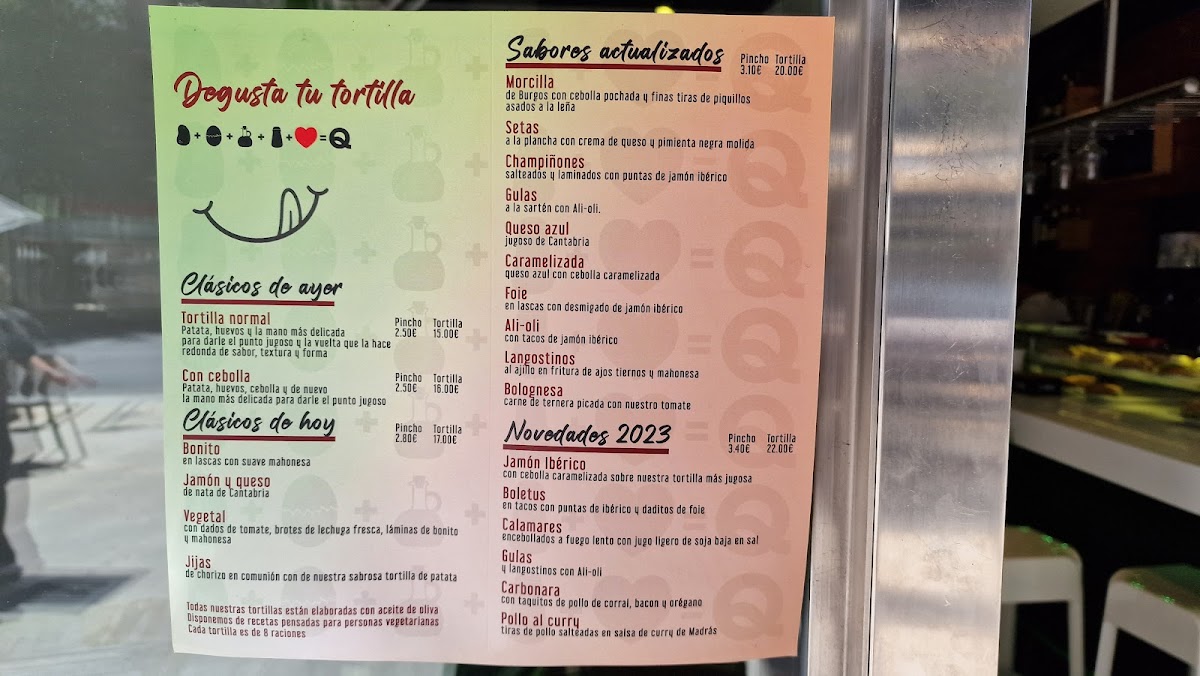 Degusta tu tortilla
+ + + + = Q
Clásicos de ayer
Tortilla normal
Patata, huevos y la mano más delicada
para darle el punto jugoso y la vuelta que la hace
redonda de sabor, textura y forma
Pincho Tortilla
2.50€ 15.00€
Con cebolla
Patata, huevos, cebolla y de nuevo
la mano más delicada para darle el punto jugoso
Pincho Tortilla
2.50€ 16.00€
Clásicos de hoy
Pincho Tortilla
2.80€ 17.00€
Bonito
en lascas con suave mahonesa
Jamón y queso
de nata de Cantabria
Vegetal
con dados de tomate, brotes de lechuga fresca, láminas de bonito
y mahonesa
Jijas
de chorizo en comunión con de nuestra sabrosa tortilla de patata
Todas nuestras tortillas están elaboradas con aceite de oliva
Disponemos de recetas pensadas para personas vegetarianas
Cada tortilla es de 8 raciones
Sabores actualizados
Pincho Tortilla
3.10€ 20.00€
Morcilla
de Burgos con cebolla pochada y finas tiras de piquillos
asados a la leña
Setas
a la plancha con crema de queso y pimienta negra molida
Champiñones
salteados y laminados con puntas de jamón ibérico
Gulas
a la sartén con Ali-oli.
Queso azul
jugoso de Cantabria
Caramelizada
queso azul con cebolla caramelizada
Foie
en lascas con desmigado de jamón ibérico
Ali-oli
con tacos de jamón ibérico
Langostinos
al ajillo en fritura de ajos tiernos y mahonesa
Bolognesa
carne de ternera picada con nuestro tomate
Novedades 2023
Pincho Tortilla
3.40€ 22.00€
Jamón Ibérico
con cebolla caramelizada sobre nuestra tortilla más jugosa
Boletus
en tacos con puntas de ibérico y daditos de foie
Calamares
encebollados a fuego lento con jugo ligero de soja baja en sal
Gulas
y langostinos con Ali-oli
Carbonara
con taquitos de pollo de corral, bacon y orégano
Pollo al curry
tiras de pollo salteadas en salsa de curry de Madrás